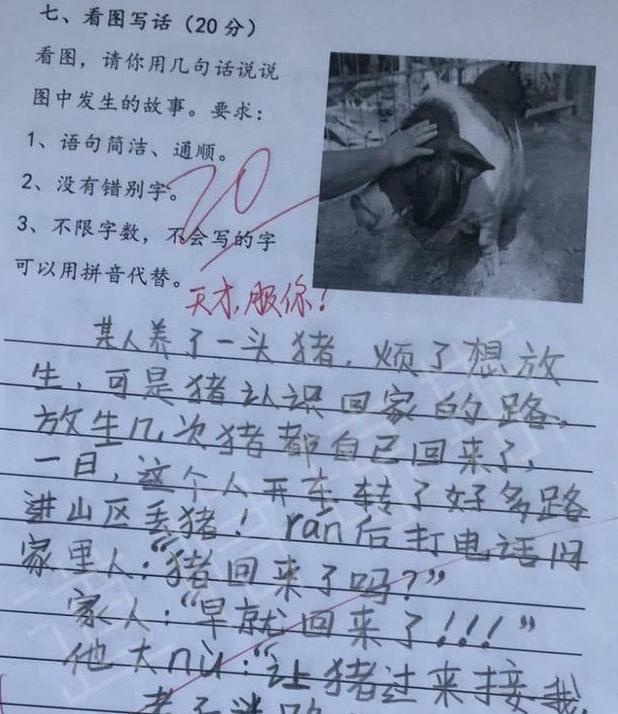 七、看图写话（20分）
看图，请你用几句话说说
图中发生的故事。要求：
1、语句简洁、通顺。
2、没有错别字。
20
3、不限字数，不会写的字
可以用拼音代替。
天才，服你！
某人养了一头猪，烦了想放
生，可是猪认识回家的路，
放生几次猪都自己回来了，
一日，这个人开车转了好多路
进山区丢猪！rán后打电话问
家里人：“猪回来了吗？”
家人：“早就回来了！！！”
他大nù：“让猪过来接我，
老子迷路